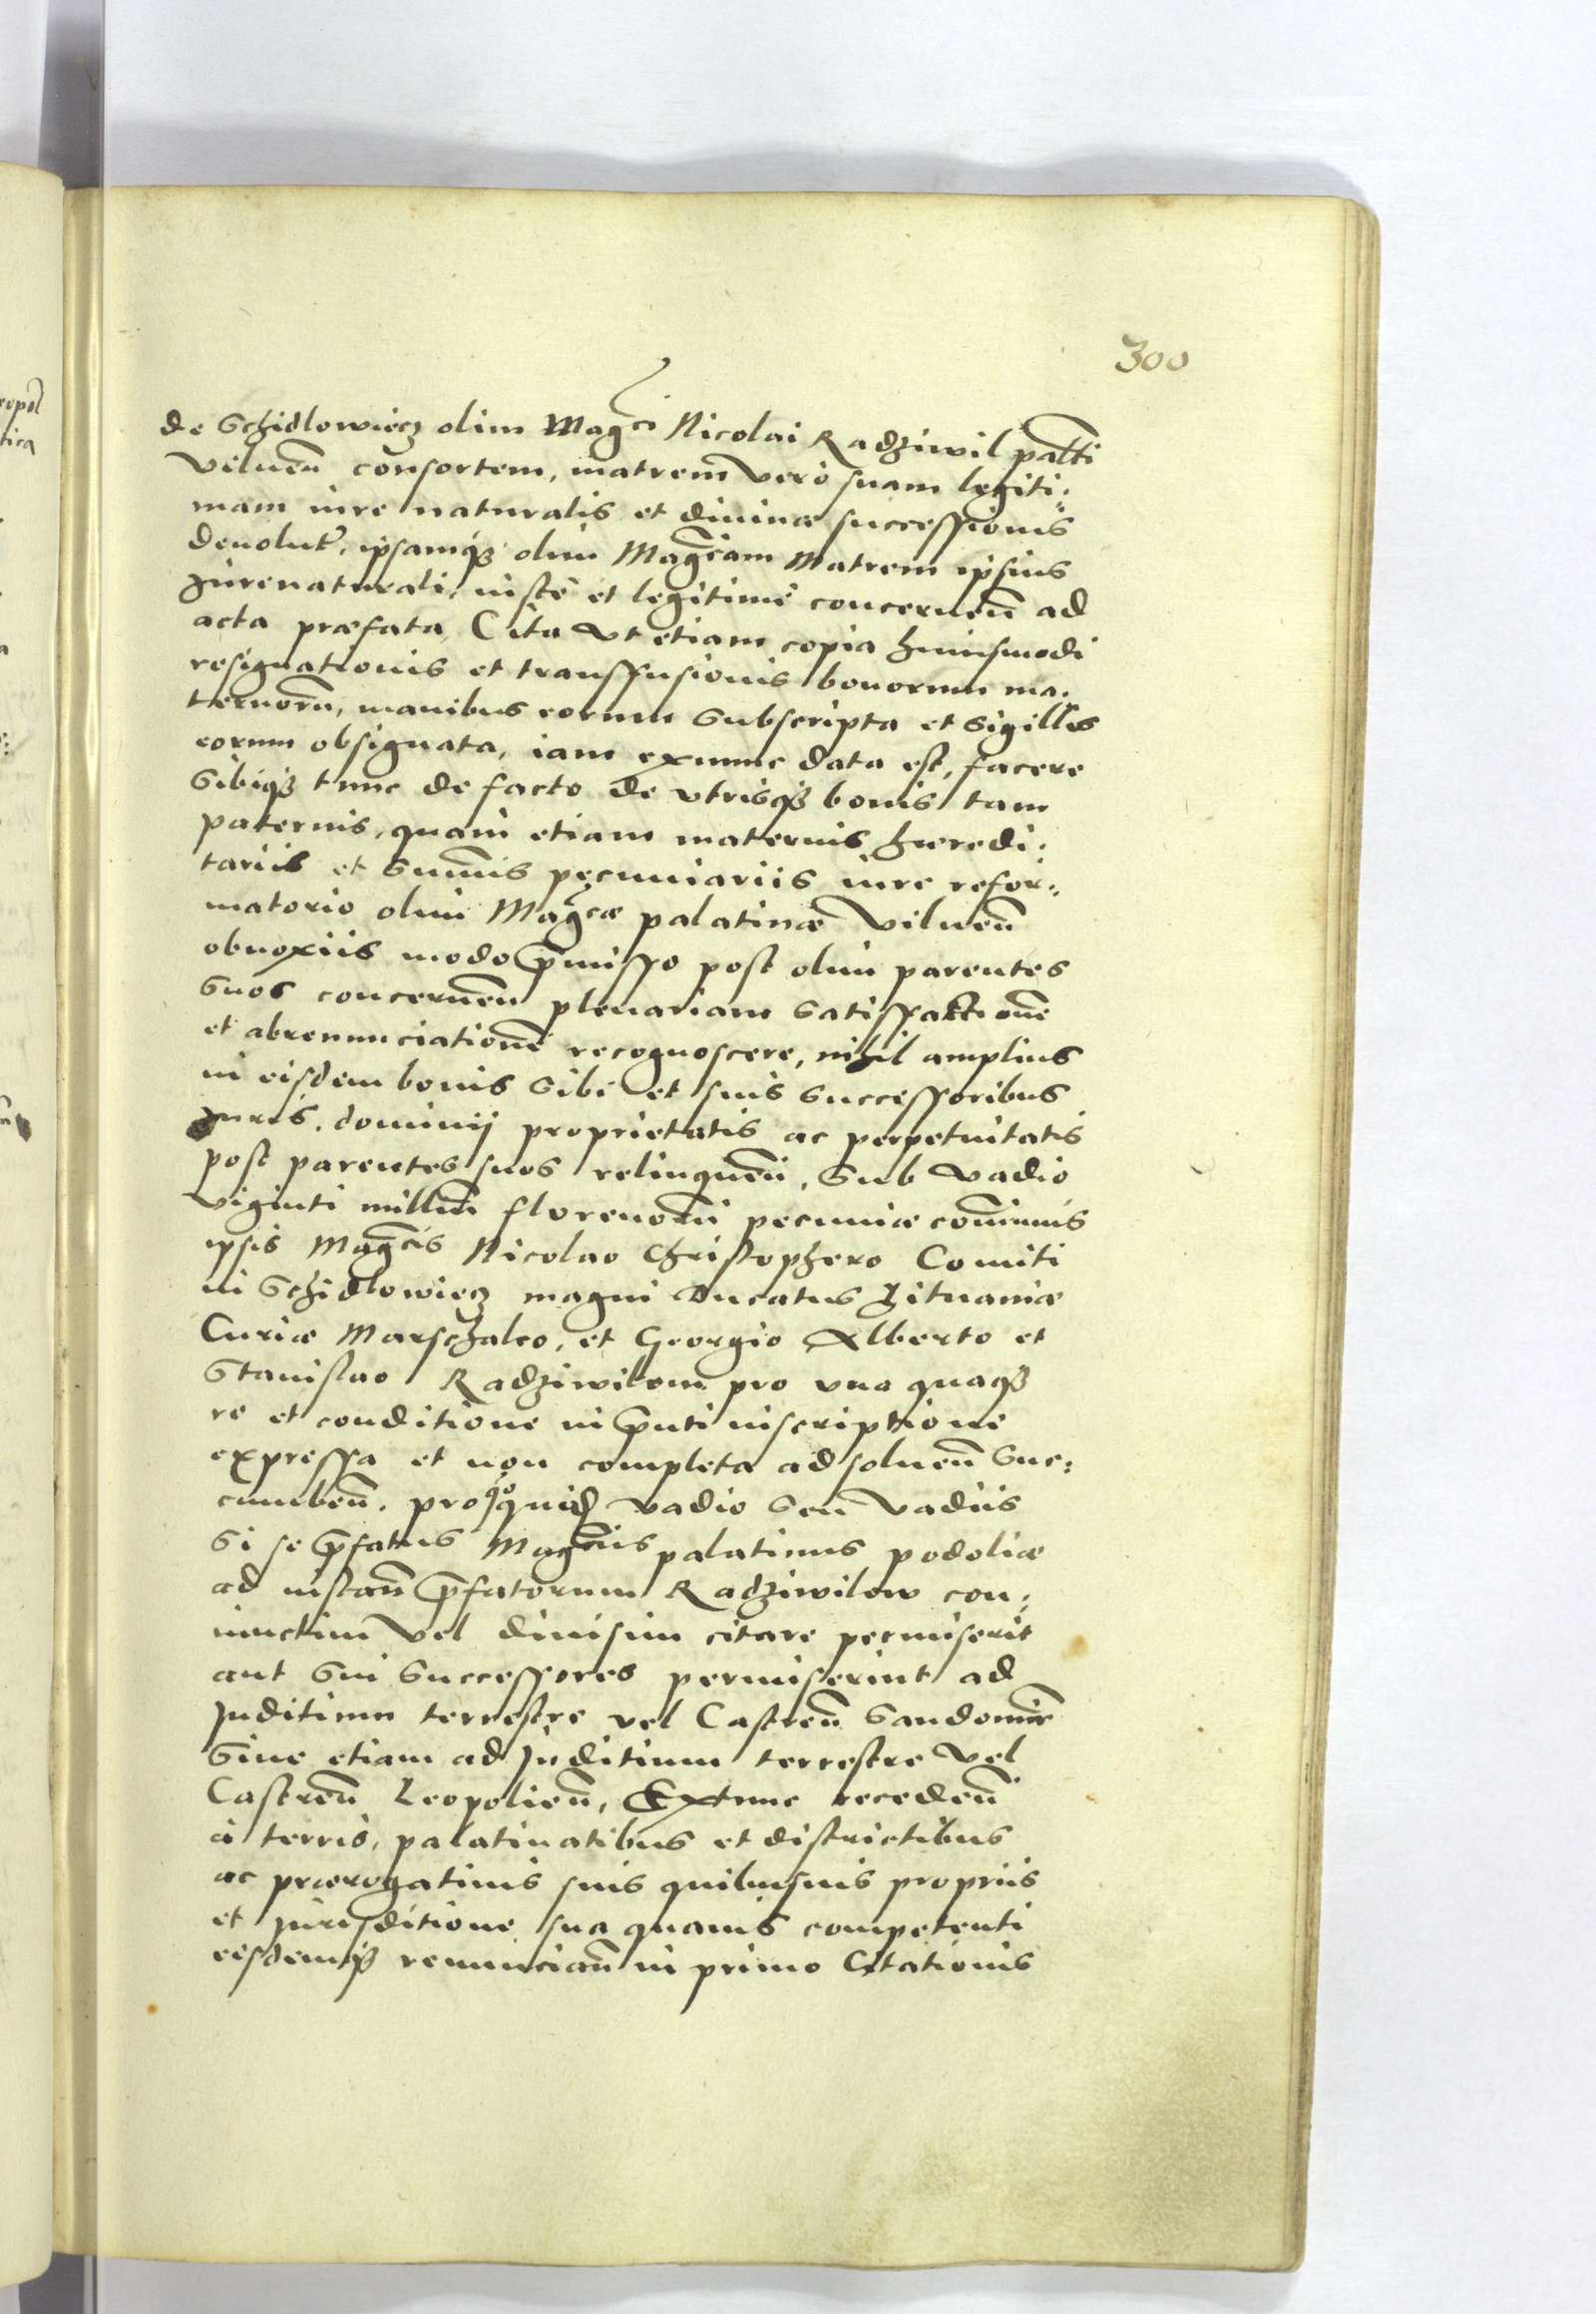 300
de Schidlowiecz olim Mag̅ci Nicolai Radziwil pal̅ti
Vilnen̅ consortem, matrem vero suam legiti:
mam iure naturalis et diuinæ successionis
deuolut̕, ipsamqȝ olim Mag̅cam Matrem ipsius
Jure naturali, iuste et legitime concernen̅ ad
acta præfata, Cita vt etiam copia huiusmodi
resignationis et transfusionis bonorum ma:
ternoru̅, manibus eorum Subscripta et Sigillis
eorum obsignata, iam exnunc data est, facere
Sibiqȝ tunc de facto de vtrisqȝ bonis tam
paternis, quam etiam maternis hæredi:
tariis et Sum̅is pecuniariis iure refor:
matorio olim Mag̅cæ palatinæ Vilnen̅
obnoxiis modo p̅misso post olim parentes
Suos concernen̅ plenariam Satisfactione̅
et abrenunciatione̅ recognoscere, nihil amplius
in eisdem bonis Sibi et suis Successoribus
Juris, dominij proprietatis ac perpetuitatis
post parentes suos relinquen̅, Sub Vadio
Viginti milliu̅ florenoru̅ pecuniæ com̅unis
ipsis Mag̅cis Nicolao Christophero Comiti
in Schidlowiecz magni Ducatus Lituaniæ
Curiæ Marschalco, et Georgio Alberto et
Stanislao Radziwilom pro vna quaqȝ
re et conditione in p̅nti inscriptione
expressa et non completa ad soluen̅ Suc:
cumben̅. pro quo quid̅ vadio Seu Vadiis
Si se p̅fatus Mag̅cus palatinus podoliæ
ad instan̅ p̅fatorum Radziwilow con:
iunctim Vel diuisim citare permiserit
aut Sui Successores permiserint ad
Juditium terrestre vel Castren̅ Sandomir̅
Siue etiam ad Juditium terrestre Vel
Castren̅ Leopolien̅, Extunc receden̅
à terris, palatinatibus et districtibus
ac prærogatiuis suis quibusuis propriis
et Jurisditione sua quauis competenti
eisdemqȝ renuncian̅ in primo Citationis